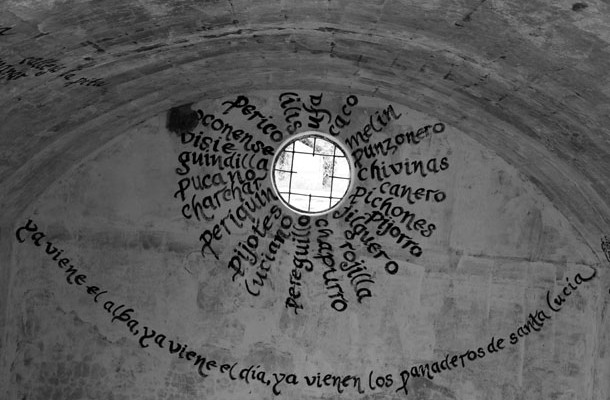 perico
lilis
jaco
melin
punzonero
chivinas
canero
pichones
pijorro
jilguero
rojilla
chapurro
pereguillo
luciano
pijotes
periquin
charchar
pucano
guindilla
visie
oconense
ya viene el alba, ya viene el día, ya vienen los panaderos de santa lucía